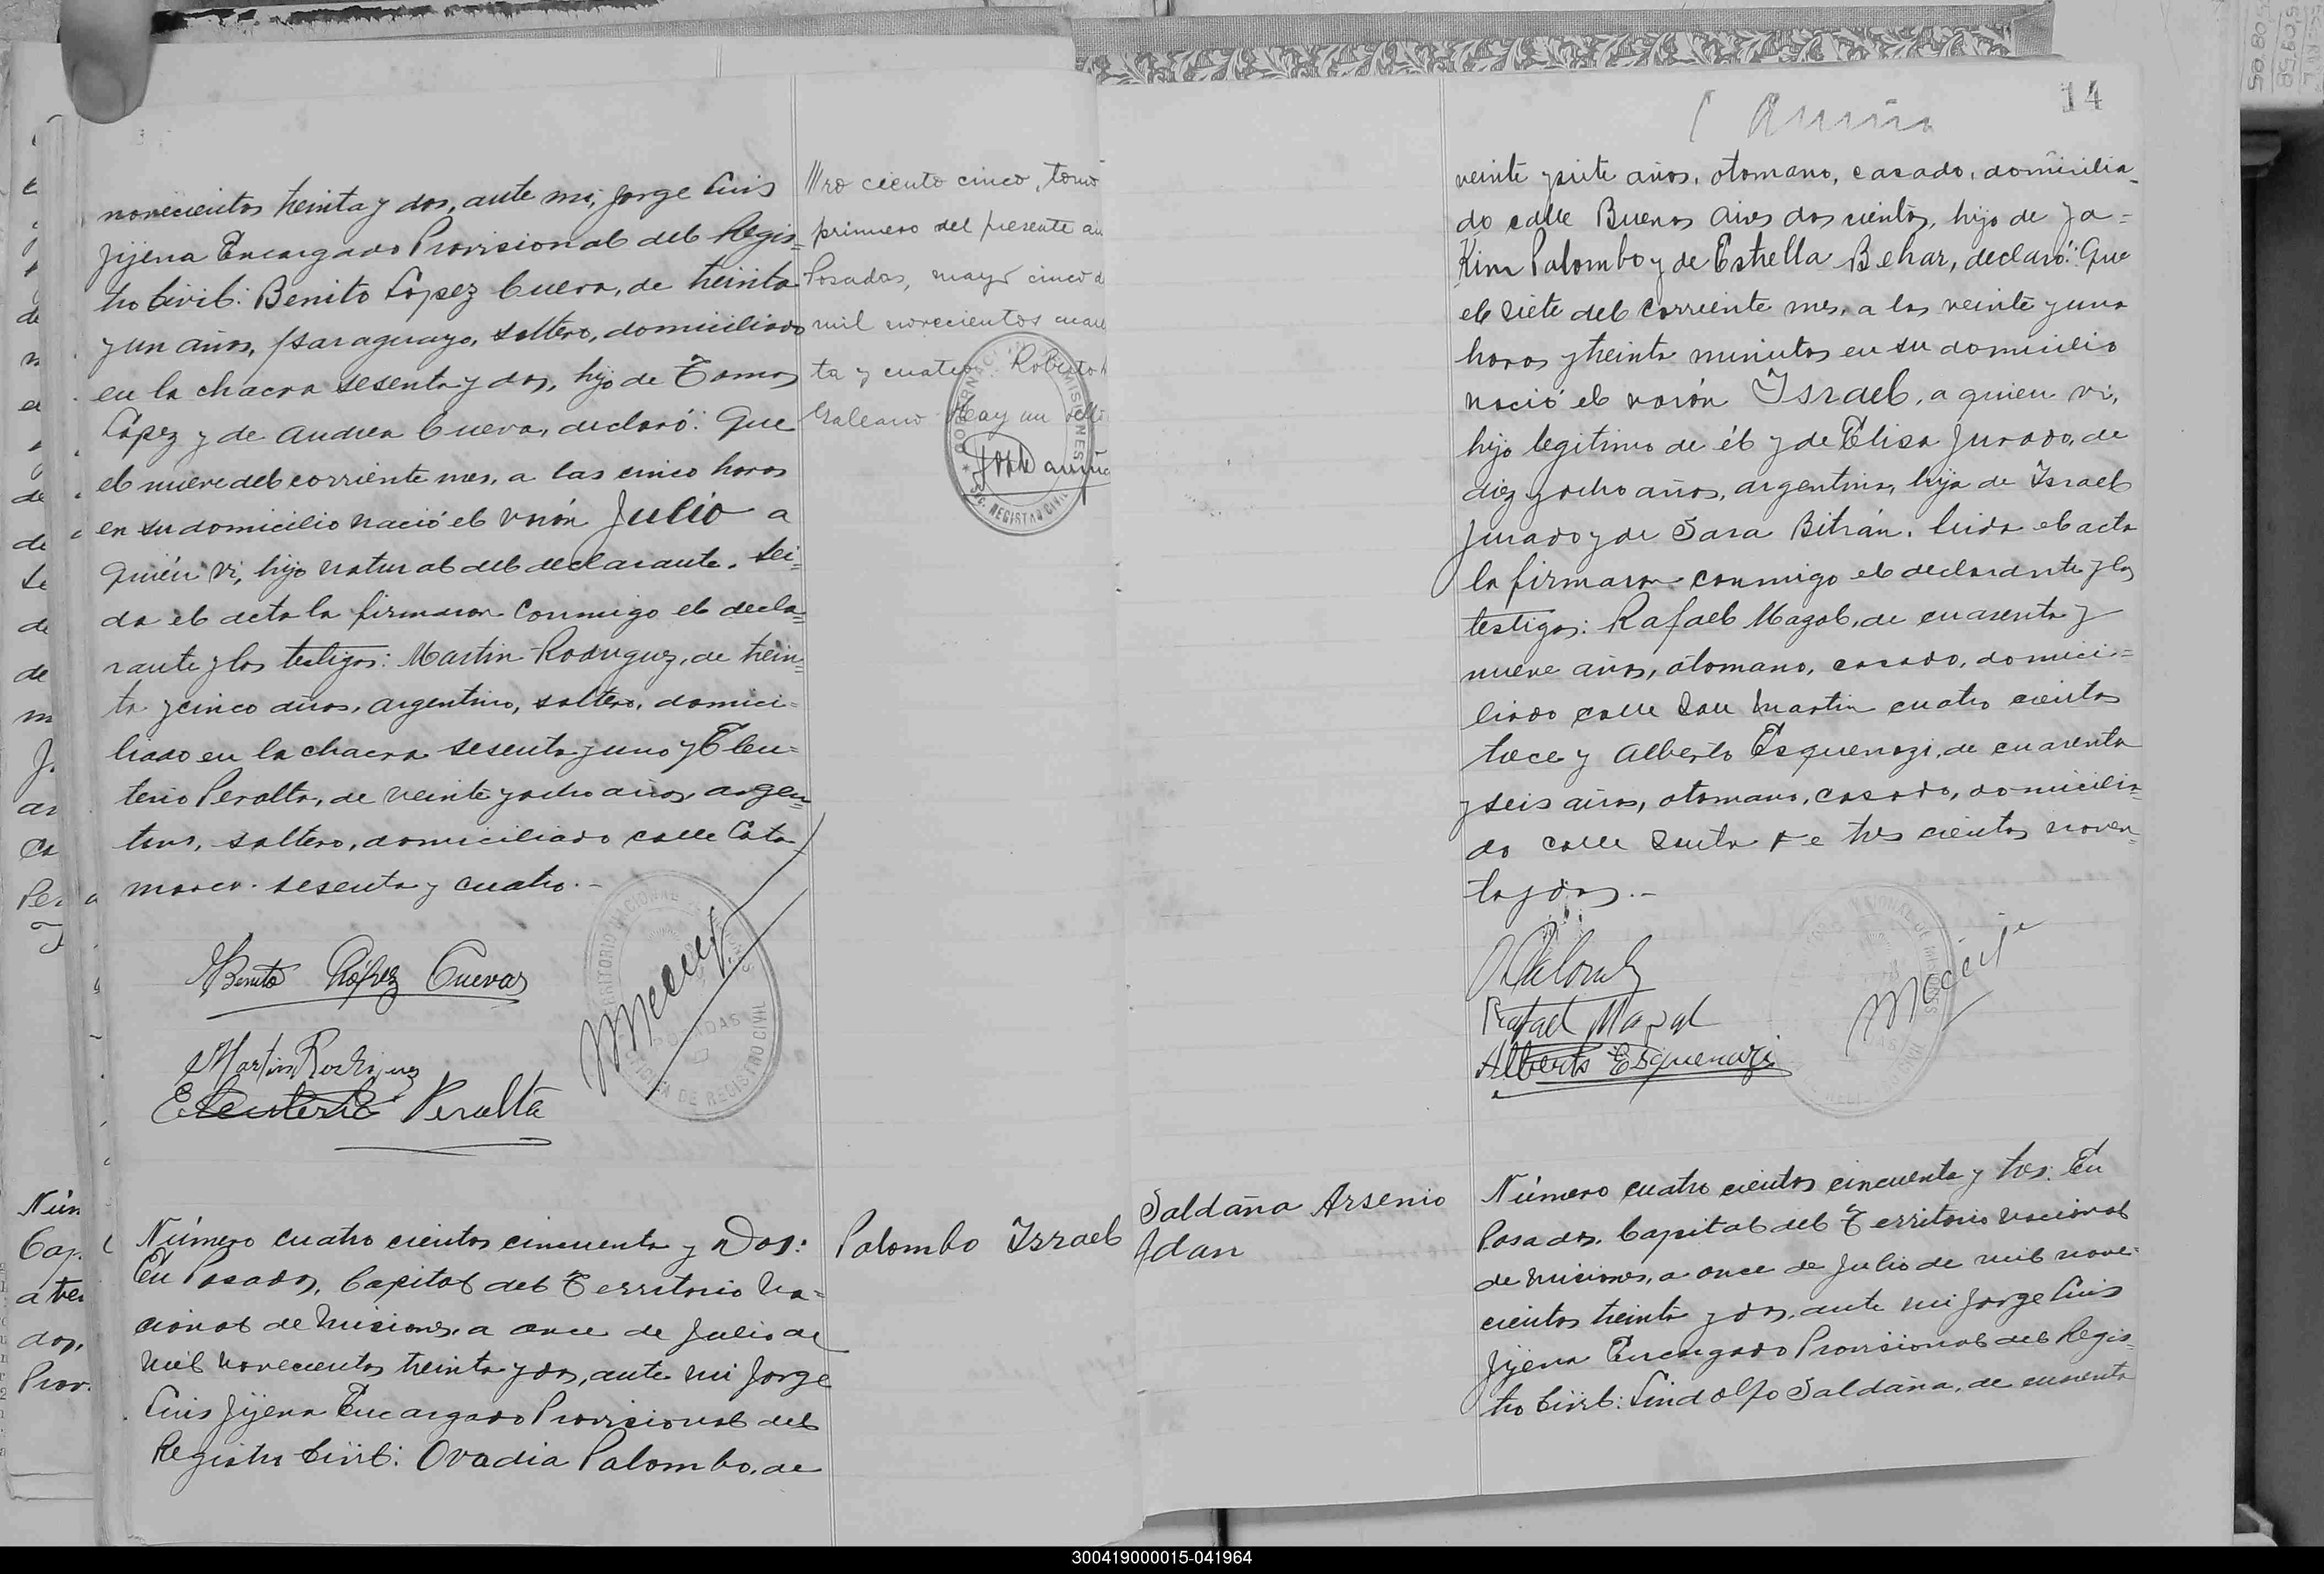 novecientos treinta y dos, ante mi, Jorge Luis
Jijena Encargado Provisional del Regis=
tro Civil: Benito López Cueva, de treinta
y un años, paraguayo, soltero, domiciliado
en la chacra sesenta y dos, hijo de Tomas
López y de Andrea Cueva, declaró: Que
el nueve del corriente mes, a las cinco horas
en su domicilio nació el varón Julio a
quién vi, hijo natural del declarante. Lei=
da el acta la firmaron conmigo el decla=
rante y los testigos: Martin Rodriguez, de trein=
ta y cinco años, argentino, soltero, domici=
liado en la chacra sesenta y uno y Eleu=
terio Peralta, de veinte y ocho años, argen=
tino, soltero, domiciliado calle Cata=
marca sesenta y cuatro.-
Benito López Cuevas
Martin Rodriguez
Eleuterio Peralta
Número cuatro cientos cincuenta y Dos:
En Posadas, Capital del Territorio Na=
cional de Misiones, a once de Julio de
mil novecientos treinta y dos, ante mi Jorge
Luis Jijena Encargado Provisional del
Registro Civil: Ovadia Palombo, de
ciento cinco, tomo
primero del presente
Posadas, mayo cinco
mil novecientos
ta y cuatro Roberto
Galeano Hay un
REGISTRO CIVIL
Palombo Israel
14
veinte y siete años, otomano, casado, domicilia=
do calle Buenos Aires dos cientos, hijo de Ja=
Kim Palombo y de Estrella Behar, declaró: Que
el siete del corriente mes, a las veinte y una
horas y treinta minutos en su domicilio
nació el varón Israel, a quien vi,
hijo legitimo de él y de Elisa Jurado, de
diez y ocho años, argentina, hija de Israel
Jurado y de Sara Bitrán. Leida el acta
la firmaron conmigo el declarante y los
testigos: Rafael Magal, de cuarenta y
nueve años, otomano, casado, domici=
liado calle San Martin cuatro cientos
trece y Alberto Esquenazi, de cuarenta
y seis años, otomano, casado, domicilia=
do calle Santa Fe tres cientos noven=
ta y dos.-
Rafael Magal
Alberto Esquenazi
Saldaña Arsenio
Adan
Número cuatro cientos cincuenta y tres: En
Posadas, Capital del Territorio Nacional
de Misiones, a once de Julio de mil nove=
cientos treinta y dos, ante mi Jorge Luis
Jijena Encargado Provisional del Regis=
tro Civil: Lindolfo Saldaña, de cuarenta
300419000015-041964